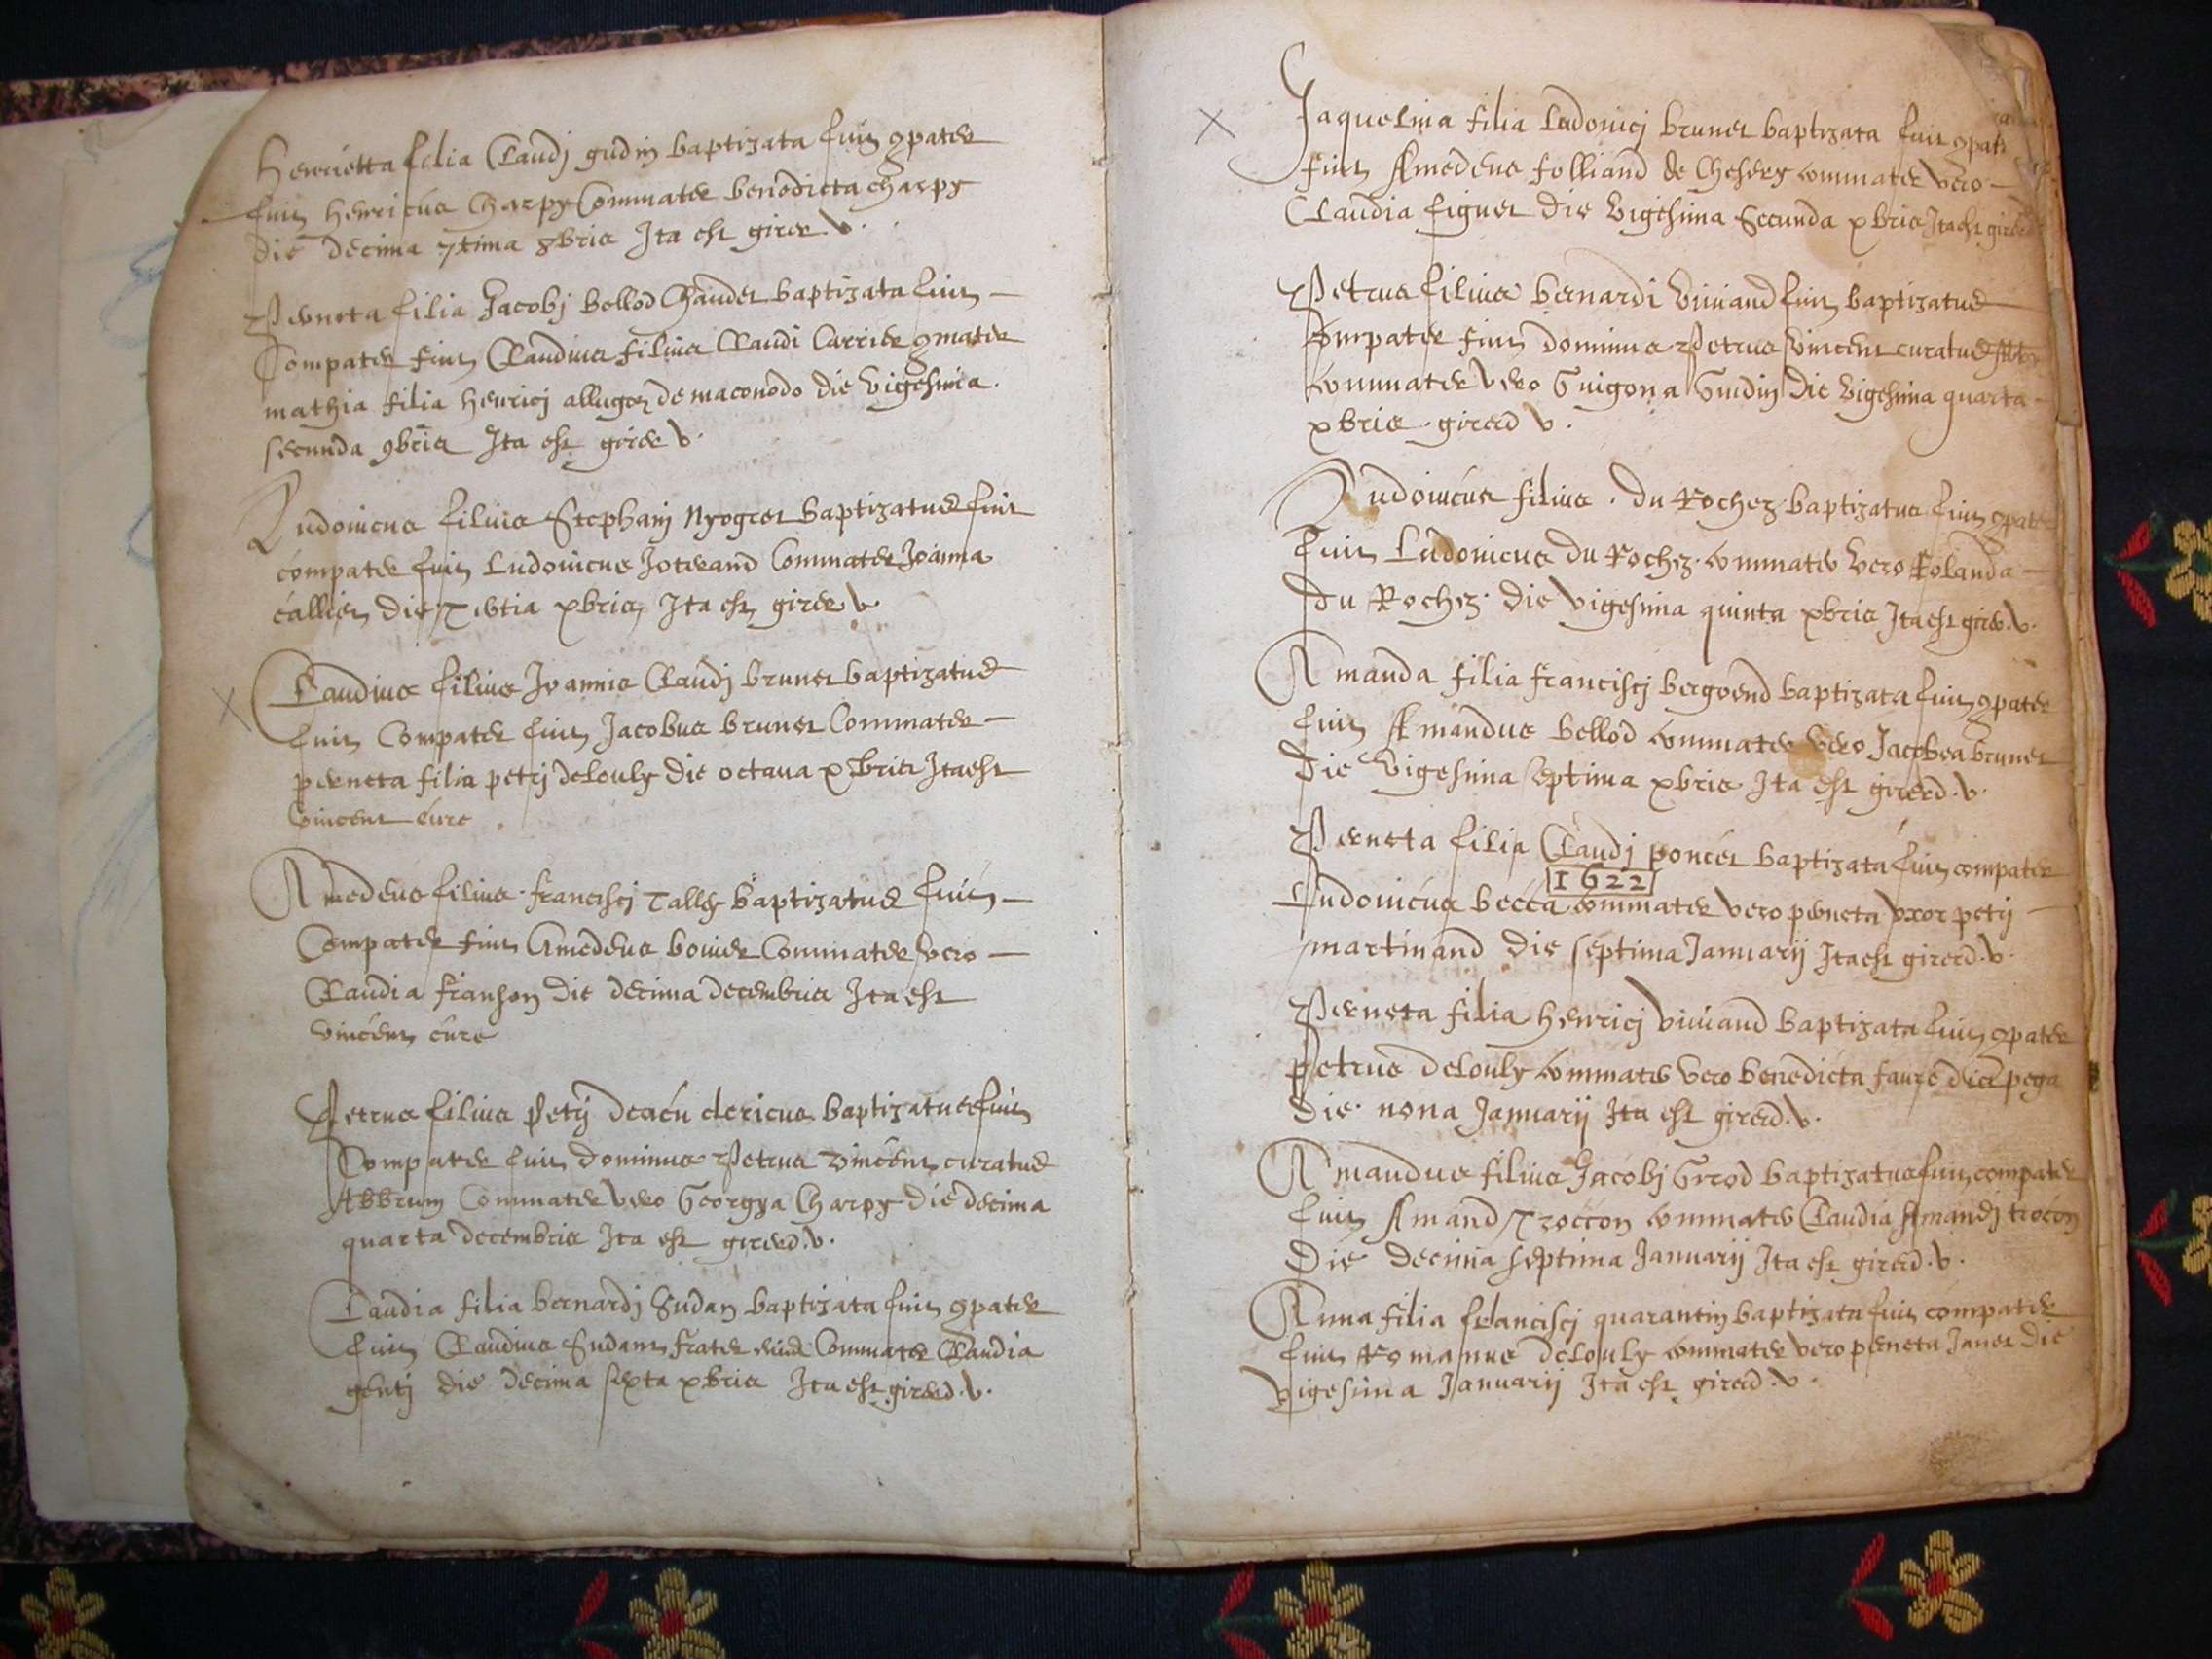 Henrietta filia Claudj gudin baptizata fuit gpater
fuit henricus Charpy Commater benedicta charpy
die decima 7tima 8bris Ita est girer v.
Perneta filia Jacobj bellod Chandet baptizata fuit
Compater fuit Claudius filius Claudi Carrier gmater
mathia filia henricj de maconodo die vigesima
secunda 9bris Ita est girer v.
Ludovicus filius Stephanj Nyogret baptizatus fuit
compater fuit Ludovicus Joterand Commater Joanna
callier die Tertia xbris Ita est girer v.
Claudius filius Joannis Claudj brunet baptizatus
fuit Compater fuit Jacobus brunet Commater
perneta filia petrj delouly die octava xbris Ita est
vincent cure
Amedeus filius franciscj Tally baptizatus fuit
Compater fuit Amedeus bovier Commater vero
Claudia franson die decima decembris Ita est
vincent cure
Petrus filius Petrj clericus baptizatus fuit
Compater fuit dominus Petrus vincent curatus
Commater vero Georgya Charpy die decima
quarta decembris Ita est girerd. v.
Claudia filia bernardj Sudan baptizata fuit gpater
fuit Claudius Sudan frater Commater Claudia
gentj die decima sexta xbris Ita est girerd. v.
Jaquelina filia Ludovicj brunet baptizata fuit gpater
fuit Amedeus folliand de Chesery commater vero
Claudia figuet die vigesima Secunda xbris Ita est girerd
Petrus filius bernardi vuiand fuit baptizatus
Compater fuit dominus Petrus vincent curatus
commater vero Guigona Gudin die vigesima quarta
xbris girerd v.
Ludovicus filius du Rochez baptizatus fuit gpater
fuit Ludovicus du Rochez commater vero Rolanda
du Rochez die vigesima quinta xbris Ita est girer. v.
Amanda filia franciscj bergoend baptizata fuit gpater
fuit Amandus bellod commater vero Jacobea brunet
die vigesima septima xbris Ita est girerd. v.
Perneta filia Claudj poncet baptizata fuit compater
1622
Ludovicus becca commater vero perneta uxor petrj
martinand die septima Januarij Ita est girerd. v.
Perneta filia henricj vuiand baptizata fuit gpater
petrus delouly commater vero benedicta faure
die nona Januarij Ita est girerd. v.
Amandus filius Jacobj Grod baptizatus fuit compater
fuit Amand Troccon commater Claudia Amandj trocon
die decima septima Januarij Ita est girerd. v.
Anna filia franciscj quarantin baptizata fuit compater
fuit Romanus delouly commater vero perneta Janet die
vigesima Januarij Ita est girerd. v.